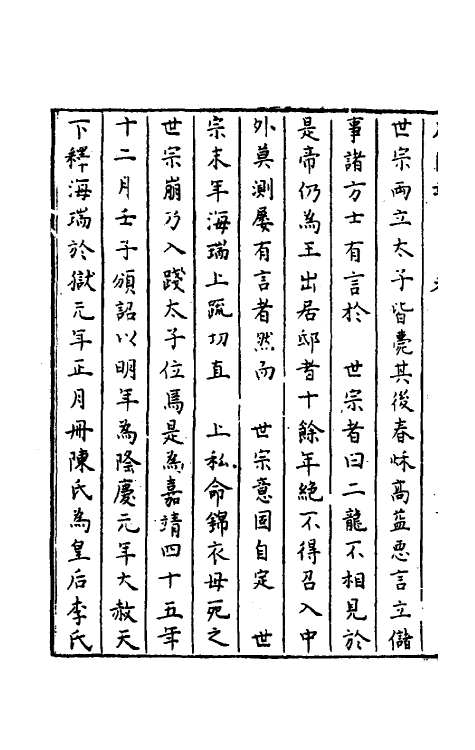 世宗両立太子皆薨其後春秌高益惡言立儲
事諸方士有言於　世宗者曰二龍不相見於
是帝仍為王出居邸者十餘年絕不得召入中
外莫測屡有言者然而　世宗意固自定　世
宗末年海瑞上疏切直　上私命錦衣毋死之
世宗崩乃入踐太子位焉是為嘉靖四十五年
十二月壬子頒詔以明年為隆慶元年大赦天
下釋海瑞於獄元年正月冊陳氏為皇后李氏